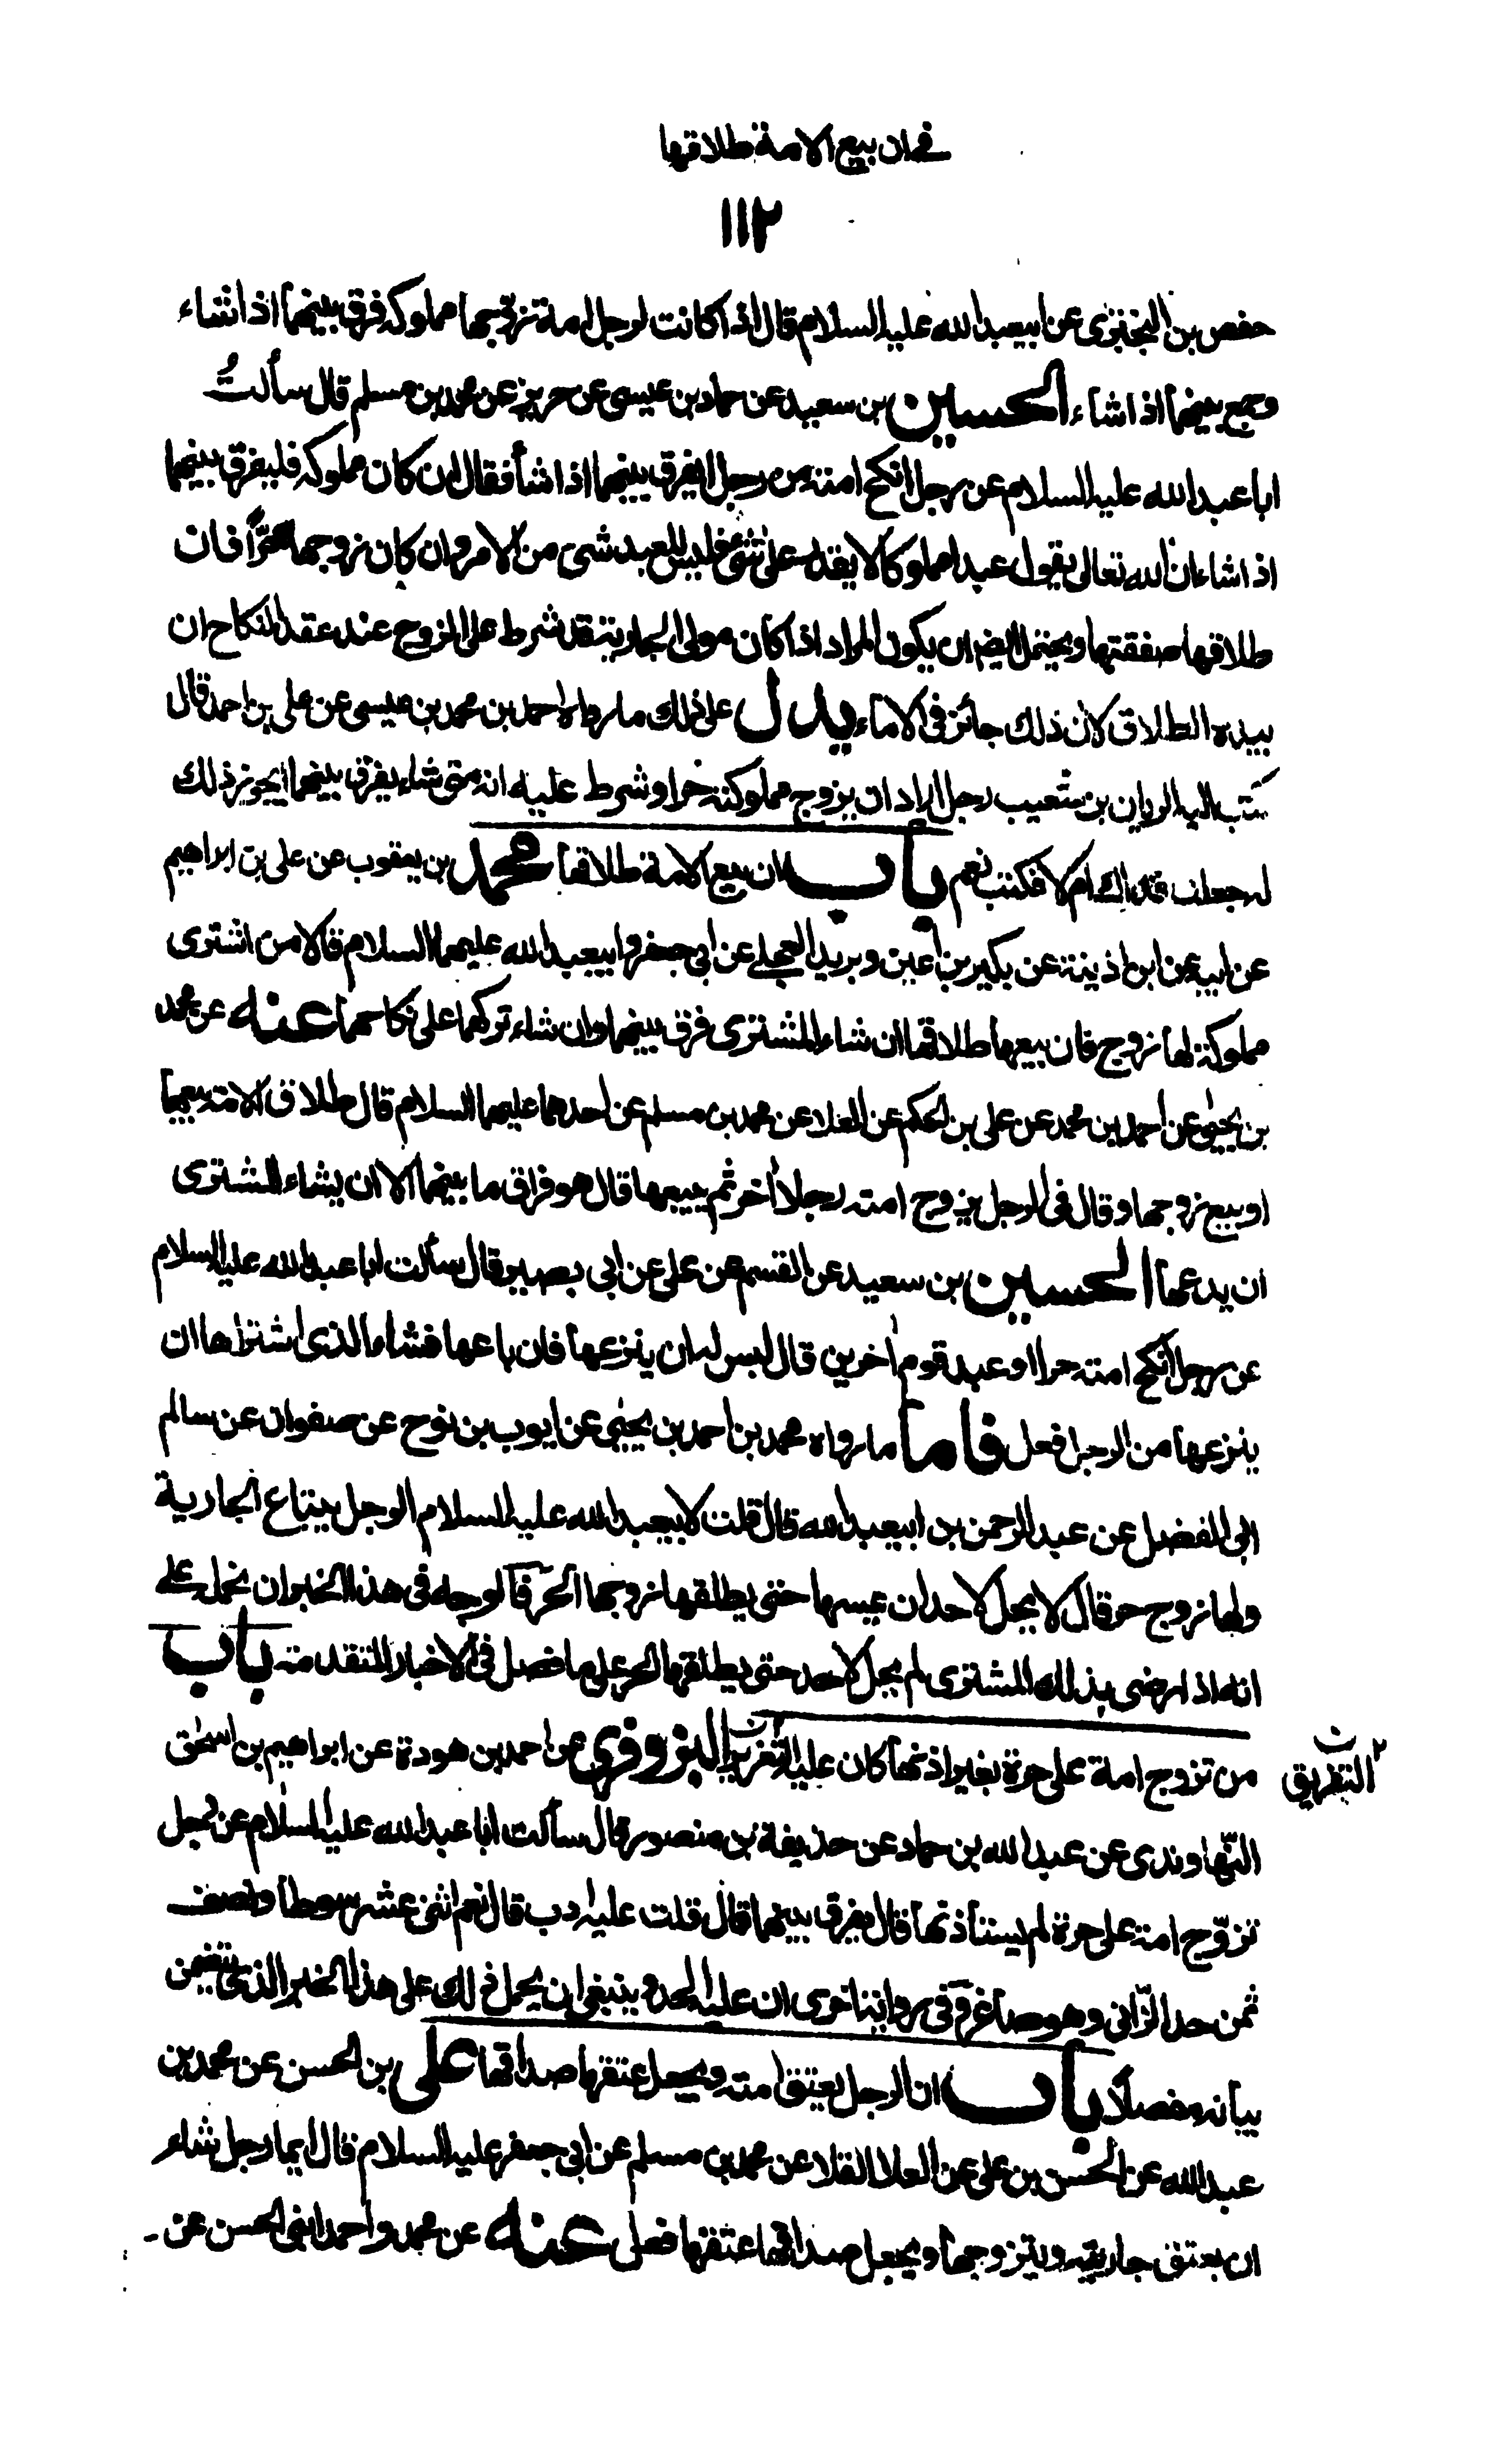 في ان بيع الامة طلاقها
١١٢
حفص بن البختري عن ابيعبد الله عليه السلام قال اذا كانت لرجل امة تزوجها مملوكه فرق بينهما اذا شاء
وجمع بينهما اذا شاء الحسين بن سعيد عن حماد بن عيسى عن حريز عن محمد بن مسلم قال سألتُ
ابا عبد الله عليه السلام عن رجل انكح امته من رجل ايفرق بينهما اذا شأ فقال ان كان مملوكه فليفرق بينهما
اذا شاء ان الله تعالى يقول عبدا مملوكا لا يقدر على شئ فليس للعبد شئ من الامر وان كان زوجها حرّاً فان
طلاقها صفقتها ويحتمل ايضا ان يكون المراد اذا كان مولى الجارية قد شرط على الزوج عند عقد النكاح ان
بيده الطلاق لأن ذلك جائز في الاماء يدل على ذلك ما رواه احمد بن محمد بن عيسى عن علي بن احمد قال
كتب اليه الريان بن شعيب رجل اراد ان يزوج مملوكته حرا وشرط عليه انه متى شاء يفرق بينهما ايجوز ذلك
له جعلت فداك ام لا فكتب نعم باب ان بيع الامة طلاقها محمد بن يعقوب عن علي بن ابراهيم
عن ابيه عن ابن اذينة عن بكير بن أعين وبريد العجلي عن ابي جعفر وابيعبد الله عليهما السلام قالا من اشترى
مملوكة لها زوج فان بيعها طلاقها ان شاء المشترى فرق بينهما وان شاء تركهما على نكاحهما عنه عن محمد
بن يحيى عن أحمد بن محمد عن علي بن الحكم عن العلا عن محمد بن مسلم عن احدهما عليهما السلام قال طلاق الامة بيعها
او بيع زوجها وقال في الرجل يزوج امته رجلا أخر ثم يبيعها قال هو فراق ما بينهما الا ان يشاء المشترى
ان يدعهما الحسين بن سعيد عن القسم عن علي عن ابي بصير قال سألت ابا عبد الله عليه السلام
عن رجل أنكح امته حرا او عبد قوم أخرين قال ليس له ان ينزعها فان باعها فشاء الذي اشتراها ان
ينزعها من الرجل فعل فاما ما رواه محمد بن احمد بن يحيى عن ايوب بن نوح عن صفوان عن سالم
ابي الفضل عن عبد الرحمن بن ابيعبد الله قال قلت لابيعبد الله عليه السلام الرجل يبتاع الجارية
ولها زوج حر قال لا يحل لاحد ان يمسها حتى يطلقها زوجها الحر فالوجه في هذا الخبر ان نحمله على
انه اذا رضى بذلك المشترى لم يحل لاحد حتى يطلقها الحر على ما فصل في الاخبار المتقدمة باب
من تزوج امة على حرة بغير اذنها كان عليه التعزير البزوفري عن احمد بن هودة عن ابراهيم بن اسحق
التفريق
النّهاوندي عن عبد الله بن حماد عن حذيفة بن منصور قال سألت ابا عبد الله عليه السلام عن رجل
تزوّج امة على حرة لم يستأذنها قال يفرق بينهما قال قلت عليه ادب قال نعم اثنى عشر سوطا ونصف
ثمن حد الزّاني وهو صاغر وفي رواية اخرى ان عليه الحد وينبغي ان يحمل ذلك على هذا الخبر الذي يتضمن
بيانه مفصلا باب ان الرجل يعتق امته ويجعل عتقها صداقها علي بن الحسن عن محمد بن
عبد الله عن الحسن بن علي عن العلا القلا عن محمد بن مسلم عن ابي جعفر عليه السلام قال ايما رجل شاء
ان يعتق جاريته ويتزوجها ويجعل صداقها عتقها فعل عنه عن محمد واحمد ابني الحسن عن